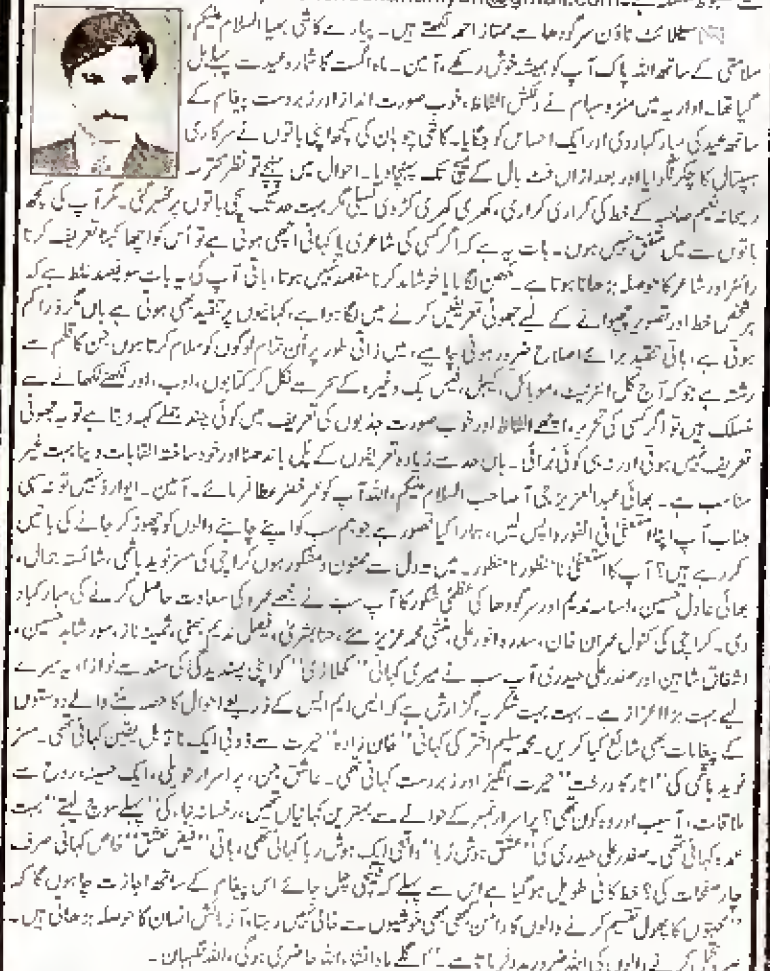 سیٹلائٹ ٹاؤن سرگودھا سے ممتاز احمد لکھتے ہیں۔ پیارے کاشی بھیا السلام علیکم،
سلامتی کے ساتھ اللہ پاک آپ کو ہمیشہ خوش رکھے، آمین۔ ماہ اگست کا شمارہ عید سے پہلے مل
گیا تھا۔ اداریہ میں منزہ سہام نے دلکش الفاظ، خوب صورت انداز اور زبردست پیغام کے
ساتھ عید کی مبارکباد دی اور ایک احساس کو جگایا۔ کاشی چوہان کی کچھ اپنی باتوں نے سرکاری
ہسپتال کا چکر لگوایا اور بعد ازاں فٹ بال کے میچ تک پہنچا دیا۔ احوال میں پہنچے تو نظر محترمہ
ریحانہ نعیم صاحبہ کے خط کی کراری کراری، کھری کھری کڑوی کسیلی مگر بہت حد تک سچی باتوں پر ٹھہر گئی۔ مگر آپ کی کچھ
باتوں سے میں متفق نہیں ہوں۔ بات یہ ہے کہ اگر کسی کی شاعری یا کہانی اچھی ہوتی ہے تو اُس کو اچھا کہنا تعریف کرنا
رائٹر اور شاعر کا حوصلہ بڑھانا ہوتا ہے۔ مکھن لگانا یا خوشامد کرنا مقصد نہیں ہوتا، باقی آپ کی یہ بات سو فیصد غلط ہے کہ
ہر شخص خط اور تصویر چھپوانے کے لیے جھوٹی تعریفیں کرنے میں لگا ہوا ہے، کہانیوں پر تنقید بھی ہوتی ہے ہاں مگر ذرا کم
ہوتی ہے، باقی تنقید برائے اصلاح ضرور ہونی چاہیے، میں ذاتی طور پر اُن تمام لوگوں کو سلام کرتا ہوں جن کا قلم سے
رشتہ ہے جو کہ آج کل انٹرنیٹ، موبائل، کیبل، فیس بک وغیرہ کے سحر سے نکل کر کتابوں، ادب، اور لکھنے لکھانے سے
منسلک ہیں تو اگر کسی کی تحریر، اچھے الفاظ اور خوب صورت جذبوں کی تعریف میں کوئی چند جملے کہہ دیتا ہے تو یہ جھوٹی
تعریف نہیں ہوتی اور نہ ہی کوئی بُرائی۔ ہاں حد سے زیادہ تعریفوں کے پُل باندھنا اور خود ساختہ القابات دینا بہت غیر
مناسب ہے۔ بھائی عبدالعزیز جی آ صاحب السلام علیکم، اللہ آپ کو عمر خضر عطا فرمائے۔ آمین۔ ایوارڈ نہیں تو نہ سہی
جناب آپ اپنا استعفیٰ فی الفور واپس لیں، ہمارا کیا قصور ہے جو ہم سب کو اپنے چاہنے والوں کو چھوڑ کر جانے کی باتیں
کر رہے ہیں؟ آپ کا استعفیٰ نامنظور نامنظور۔ میں تہہ دل سے ممنون و مشکور ہوں کراچی کی مسز نوید ہاشمی، شائستہ جمال،
بھائی عادل حسین، اسامہ ندیم اور سرگودھا کی عظمیٰ شکور کا آپ سب نے مجھے عمرہ کی سعادت حاصل کرنے کی مبارکباد
دی۔ کراچی کی کنول عمران خان، سدرہ انور علی، منشی محمد عزیز مئے، حنا بشریٰ، فیصل ندیم بھٹی، ثمینہ ناز، سور شاہد حسین،
اشفاق شاہین اور صفدر علی حیدری آپ سب نے میری کہانی ''کھلاڑی'' کو اپنی پسندیدگی کی سند سے نوازا، یہ میرے
لیے بہت بڑا اعزاز ہے۔ بہت بہت شکریہ، گزارش ہے کہ ایس ایم ایس کے ذریعے احوال کا حصہ بننے والے دوستوں
کے پیغامات بھی شائع کیا کریں۔ محمد سلیم اختر کی کہانی ''خان زادہ'' حیرت سے ڈوبی ایک ناقابل یقین کہانی تھی۔ مسز
نوید ہاشمی کی ''انار کا درخت'' حیرت انگیز اور زبردست کہانی تھی۔ عاشق جن، پراسرار حویلی، ایک حسینہ، روح سے
ملاقات، آسیب اور وہ کون تھی؟ پراسرار نمبر کے حوالے سے بہترین کہانیاں تھیں، رخسانہ کی ''پہلے سوچ لیتے'' بہت
عمدہ کہانی تھی۔ صفدر علی حیدری کی ''عشق ہوش رُبا'' واقعی ایک ہوش ربا کہانی تھی، باقی ''فیض عشق'' خاص کہانی صرف
چار صفحات کی؟ خط کافی طویل ہو گیا ہے اس سے پہلے کہ قینچی چل جائے اس پیغام کے ساتھ اجازت چاہوں گا کہ
''محبتوں کا پھول تقسیم کرنے والوں کا دامن کبھی بھی خوشیوں سے خالی نہیں رہتا، آزمائش انسان کا حوصلہ بڑھاتی ہیں۔
کرنے والوں کی اللہ ضرور مدد فرماتا ہے۔'' اگلے ماہ انشاء اللہ حاضری ہوگی، اللہ نگہبان۔